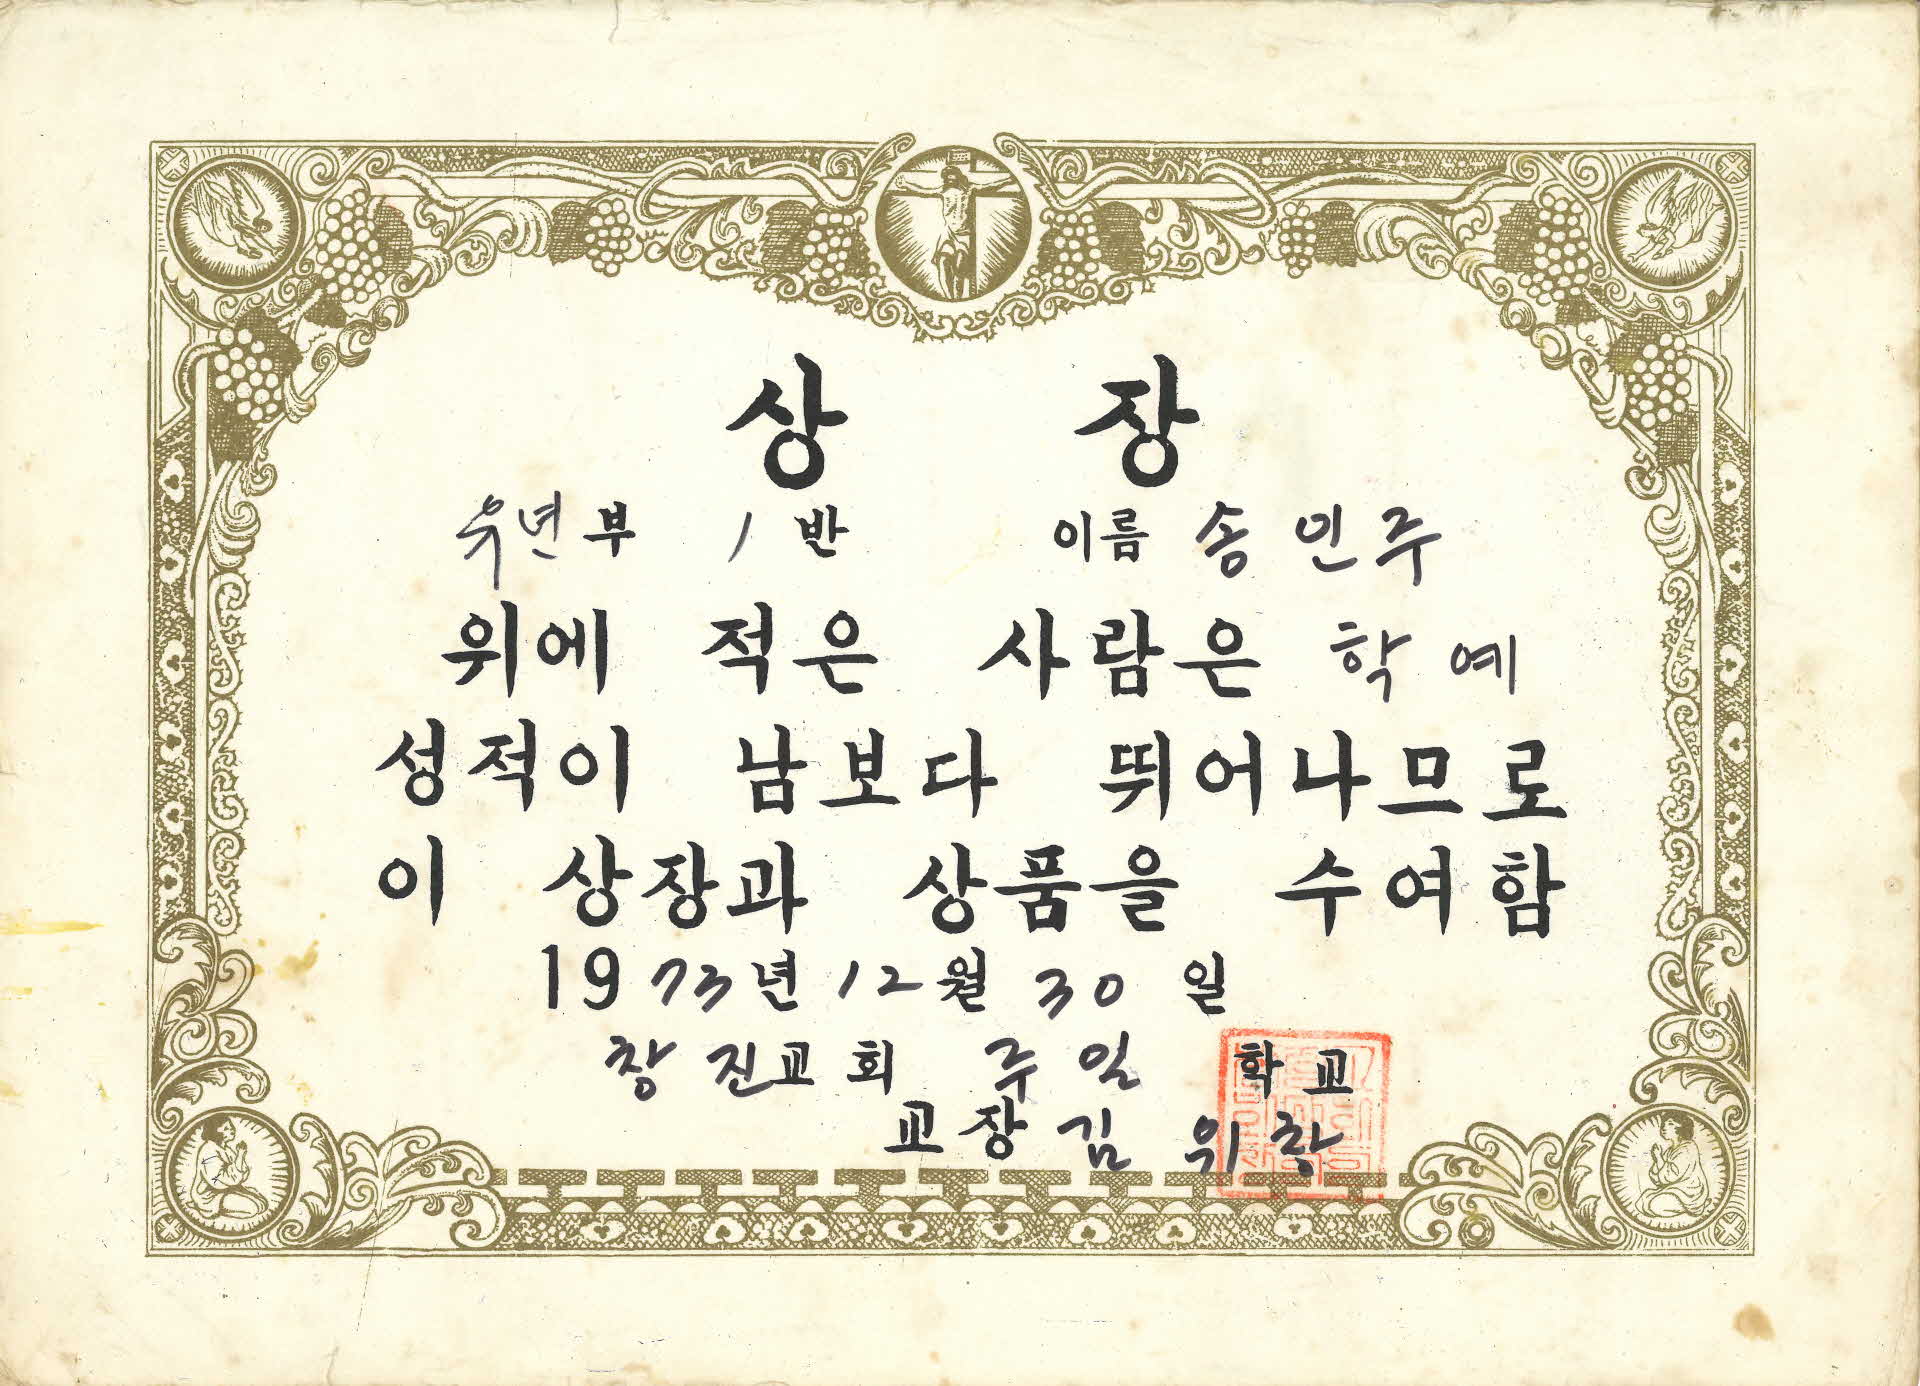 상 장
유년부 1반 이름 송민주
위에 적은 사람은 학예
성적이 남보다 뛰어나므로
이 상장과 상품을 수여함
1973년 12월 30일
창진교회 주일 학교
교장 김위창